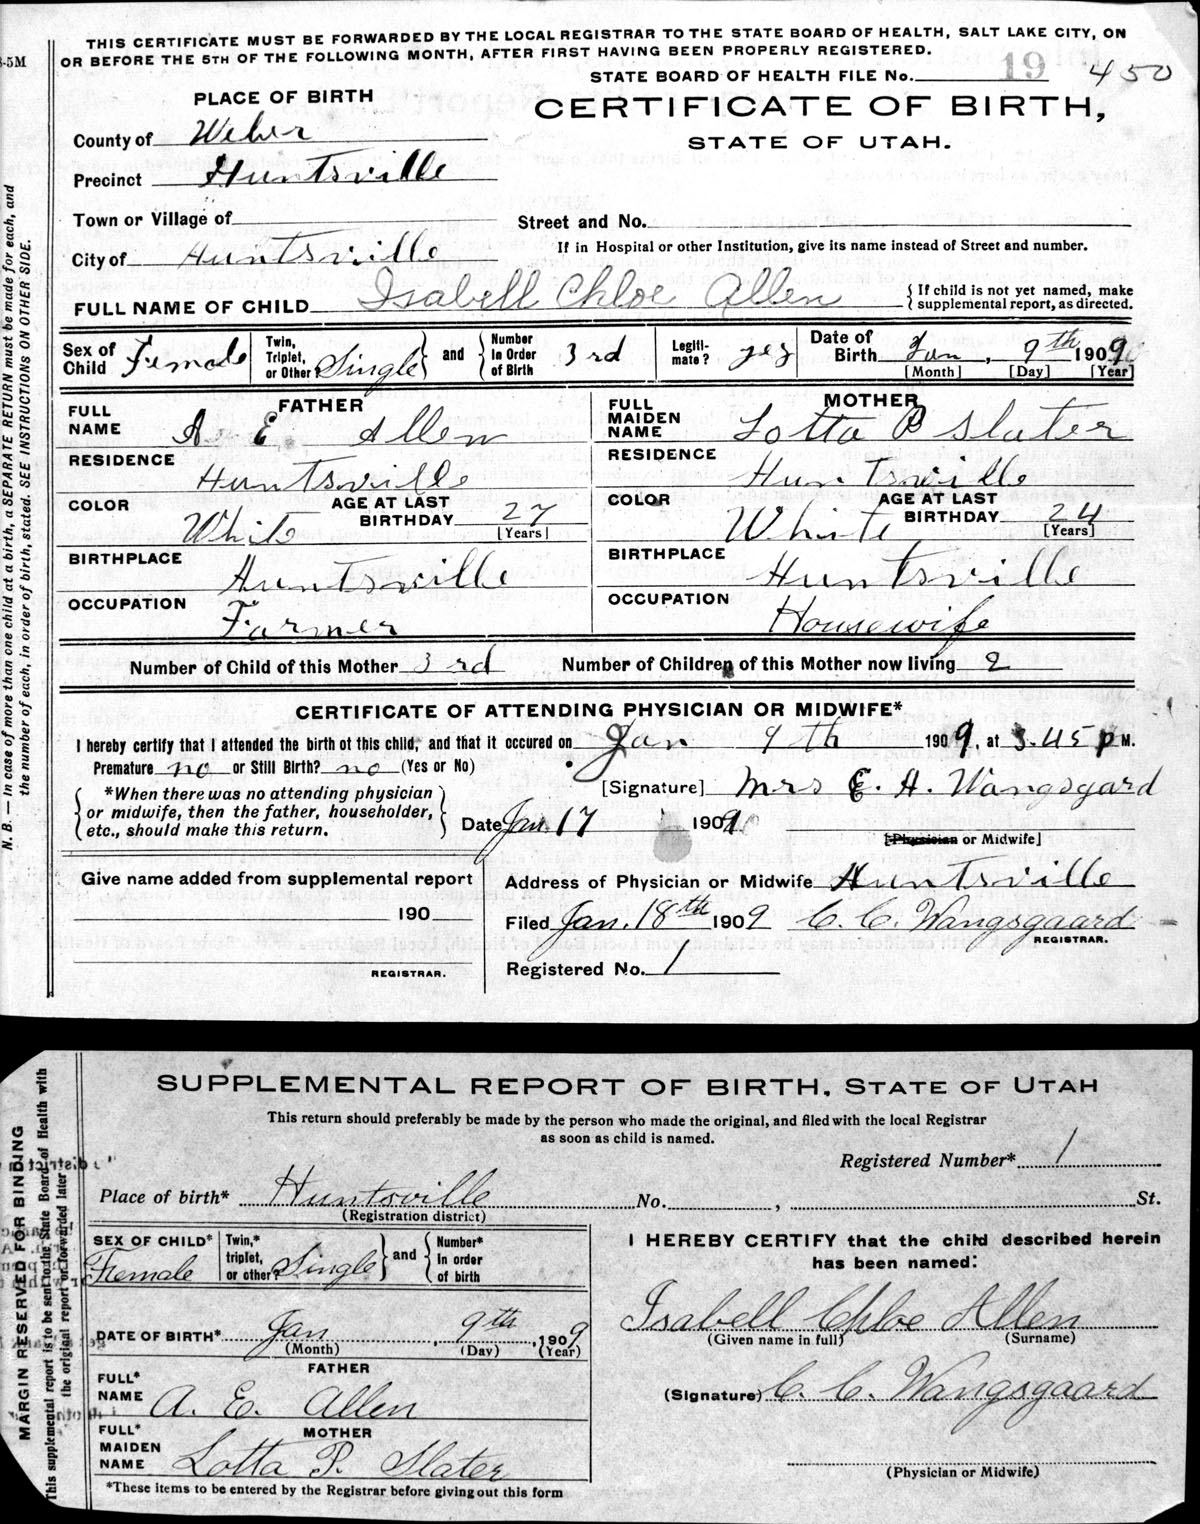 THIS CERTIFICATE MUST BE FORWARDED BY THE LOCAL REGISTRAR TO THE STATE BOARD OF HEALTH, SALT LAKE CITY, ON
OR BEFORE THE 5TH OF THE FOLLOWING MONTH, AFTER FIRST HAVING BEEN PROPERLY REGISTERED.
STATE BOARD OF HEALTH FILE No. 19 450
PLACE OF BIRTH
CERTIFICATE OF BIRTH,
STATE OF UTAH.
County of Weber
Precinct Huntsville
Town or Village of
Street and No.
City of Huntsville
If in Hospital or other Institution, give its name instead of Street and number.
FULL NAME OF CHILD Isabell Chloe Allen { If child is not yet named, make supplemental report, as directed.
Sex of Child Female Twin, Triplet, or Other? Single } and { Number In Order of Birth 3rd Legiti-mate? yes Date of Birth Jan, 9th 1909
[Month] [Day] [Year]
FATHER MOTHER
FULL NAME A E Allen FULL MAIDEN NAME Lotta P Slater
RESIDENCE Huntsville RESIDENCE Huntsville
COLOR White AGE AT LAST BIRTHDAY 27 [Years] COLOR White AGE AT LAST BIRTHDAY 24 [Years]
BIRTHPLACE Huntsville BIRTHPLACE Huntsville
OCCUPATION Farmer OCCUPATION Housewife
Number of Child of this Mother 3rd Number of Children of this Mother now living 2
CERTIFICATE OF ATTENDING PHYSICIAN OR MIDWIFE*
I hereby certify that I attended the birth of this child, and that it occured on Jan 9th 1909, at 3.45 P M.
Premature no or Still Birth? no (Yes or No)
[Signature] Mrs E. H. Wangsgard
{ *When there was no attending physician or midwife, then the father, householder, etc., should make this return. }
Date Jan. 17 1909
[Physician or Midwife]
Give name added from supplemental report
Address of Physician or Midwife Huntsville
190
Filed Jan. 18th 1909 C. C. Wangsgaard
REGISTRAR.
REGISTRAR.
Registered No. 1
N. B. — In case of more than one child at a birth, a SEPARATE RETURN must be made for each, and
the number of each, in order of birth, stated. SEE INSTRUCTIONS ON OTHER SIDE.
SUPPLEMENTAL REPORT OF BIRTH, STATE OF UTAH
This return should preferably be made by the person who made the original, and filed with the local Registrar
as soon as child is named.
Registered Number* 1
Place of birth* Huntsville No. , St.
(Registration district)
SEX OF CHILD* Female Twin,* triplet, or other? Single } and { Number* In order of birth
I HEREBY CERTIFY that the child described herein
has been named:
Isabell Chloe Allen
(Given name in full) (Surname)
DATE OF BIRTH* Jan, 9th, 1909
(Month) (Day) (Year)
FATHER
FULL* NAME A. E. Allen
(Signature) C. C. Wangsgaard
MOTHER
FULL* MAIDEN NAME Lotta P. Slater
(Physician or Midwife)
*These items to be entered by the Registrar before giving out this form
MARGIN RESERVED FOR BINDING
This supplemental report is to be sent to the State Board of Health with
the original report or forwarded later